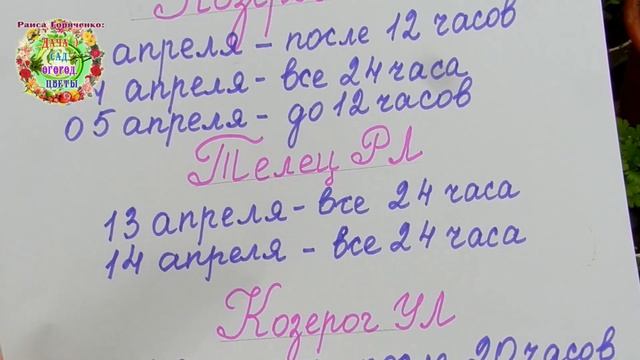 Раиса Горяченко:
ДАЧА
САД
ОГОРОД
ЦВЕТЫ
Козерог
апреля – после 12 часов
апреля – все 24 часа
05 апреля – до 12 часов
Телец РЛ
13 апреля – все 24 часа
14 апреля – все 24 часа
Козерог УЛ
после 20 часов